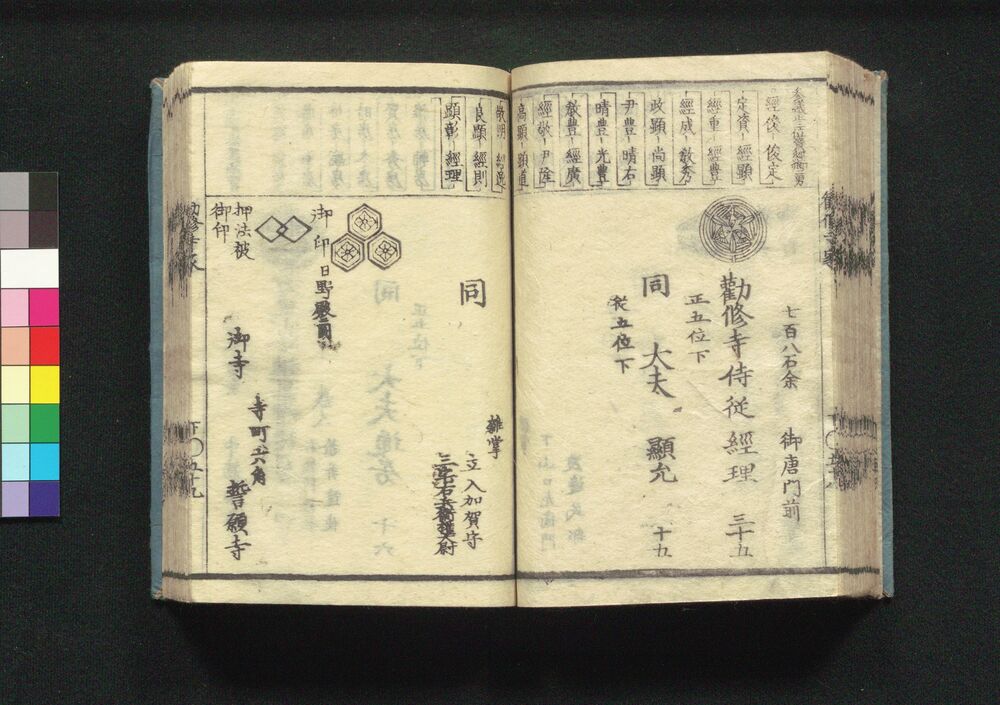 經俊 俊定
定資 經顯
經重 經豊
經成 教秀
政顯 尚顯
尹豊 晴右
晴豊 光豊
教豊 經廣
經敬 尹隆
高顯 顯道
敬明 經逸
良顯 經則
顯彰 經理
七百八石余 御唐門前
勸修寺侍従 經理 三十五
正五位下
同 大夫 顯允 十九
従五位下
同
雜掌
立入加賀守
御印
日野殿
押法被
御印
御寺
寺町六角
誓願寺